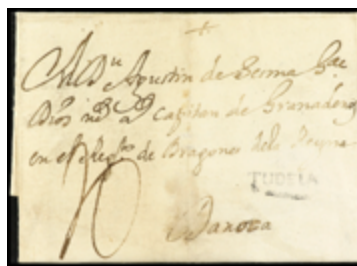 +
A Dn Agustin de
Dios a Capitan de Granaderos
en el Regto de Dragones de la Reyna
TUDELA
Daroca